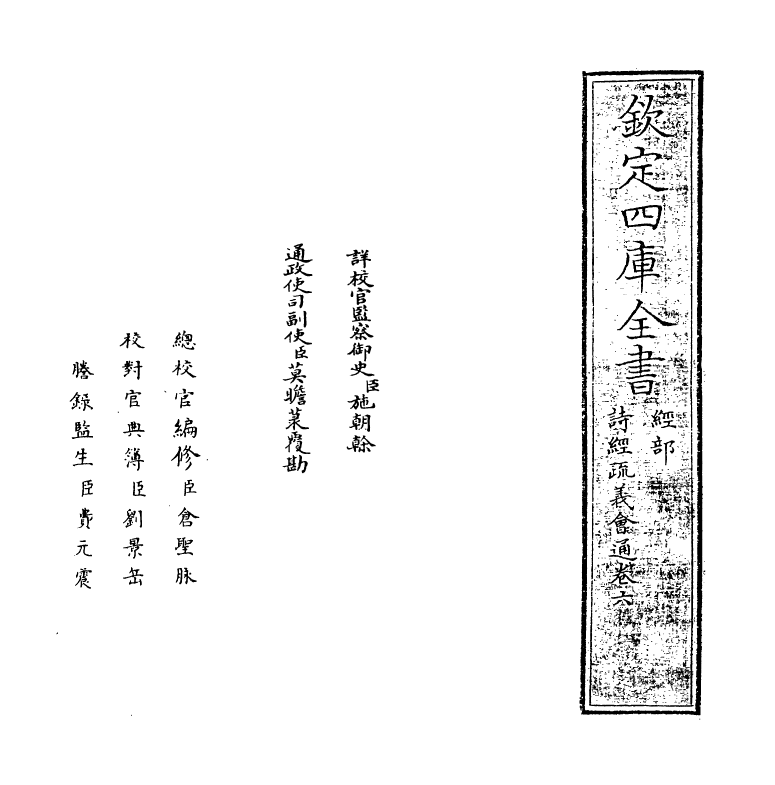 欽定四庫全書
經部
詩經疏義會通卷六
詳校官監察御史臣施朝榦
通政使司副使臣莫瞻菉覆勘
總校官編修臣倉聖脉
校對官典簿臣劉景岳
謄錄監生臣費元震